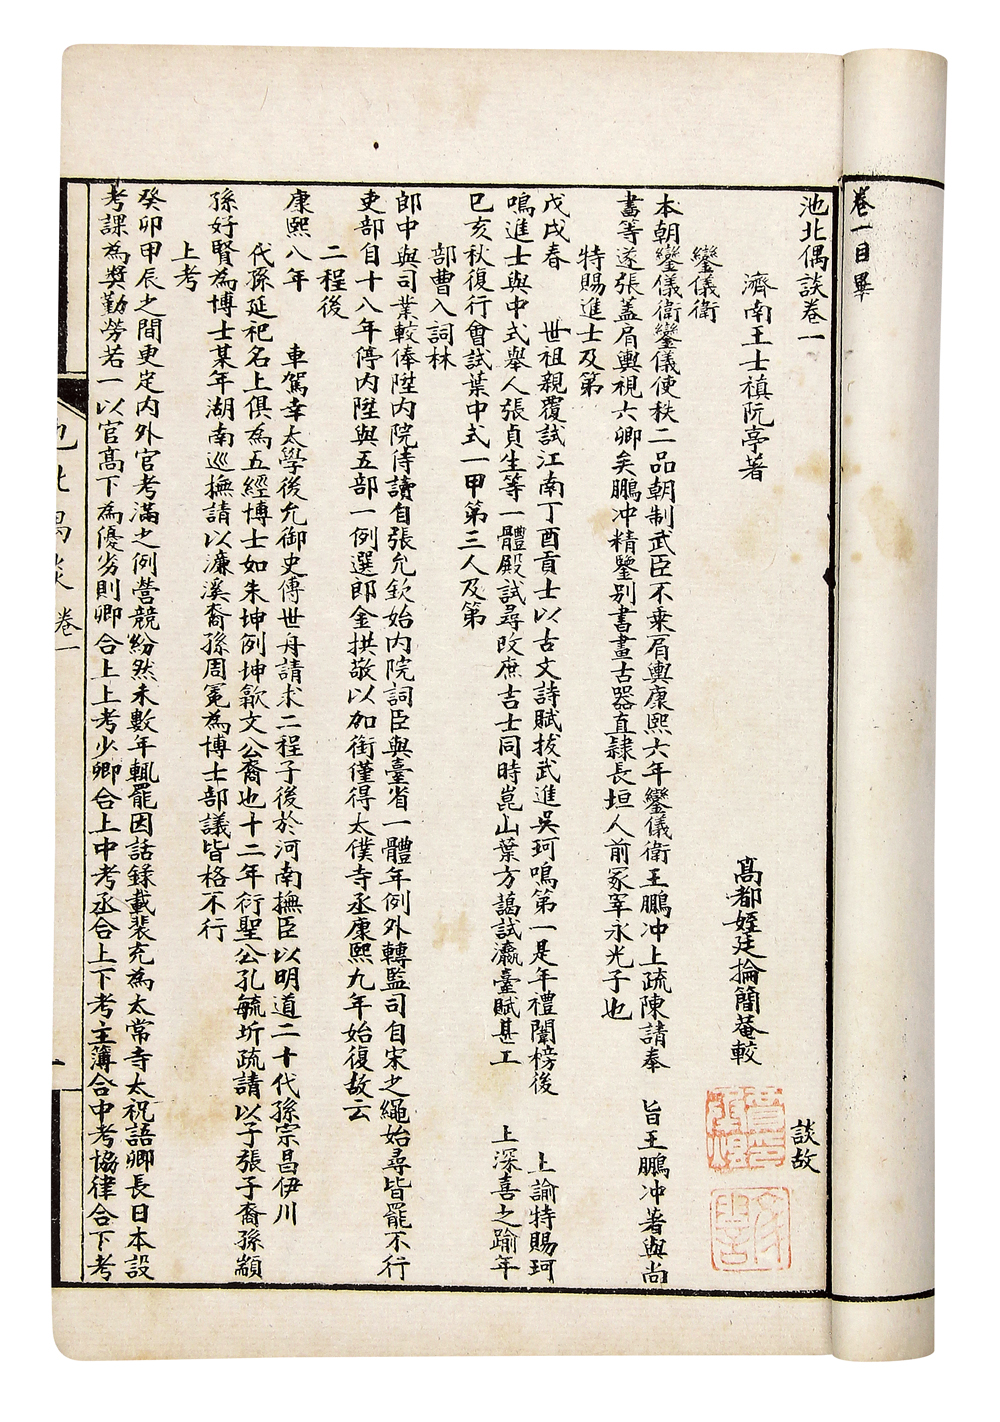 卷一目畢
池北偶談卷一
談故
濟南王士禛阮亭著
高都姪廷掄簡菴較
鑾儀衛
本朝鑾儀衛鑾儀使秩二品朝制武臣不乘肩輿康熙六年鑾儀衛王鵬冲上疏陳請奉 旨王鵬冲著與尚
書等遂張蓋肩輿視六卿矣鵬冲精鑒別書畫古器直隸長垣人前冢宰永光子也
特賜進士及第
戊戌春 世祖親覆試江南丁酉貢士以古文詩賦拔武進吳珂鳴第一是年禮闈榜後 上諭特賜珂
鳴進士與中式舉人張貞生等一體殿試尋改庶吉士同時崑山葉方藹試瀛臺賦甚工 上深喜之踰年
已亥秋復行會試葉中式一甲第三人及第
部曹入詞林
郎中與司業較俸陞內院侍讀自張允欽始內院詞臣與臺省一體年例外轉監司自宋之繩始尋皆罷不行
吏部自十八年停內陞與五部一例選郎金拱敬以加銜僅得太僕寺丞康熙九年始復故云
二程後
康熙八年 車駕幸太學後允御史傅世舟請求二程子後於河南撫臣以明道二十代孫宗昌伊川
代孫延祀名上俱為五經博士如朱坤例坤歙文公裔也十二年衍聖公孔毓圻疏請以子張子裔孫顓
孫好賢為博士某年湖南巡撫請以濂溪裔孫周冕為博士部議皆格不行
上考
癸卯甲辰之間更定內外官考滿之例營競紛然未數年輒罷因話錄載裴充為太常寺太祝語卿長日本設
考課為獎勤勞若一以官高下為優劣則卿合上上考少卿合上中考丞合上下考主簿合中考協律合下考
池北偶談 卷一
一